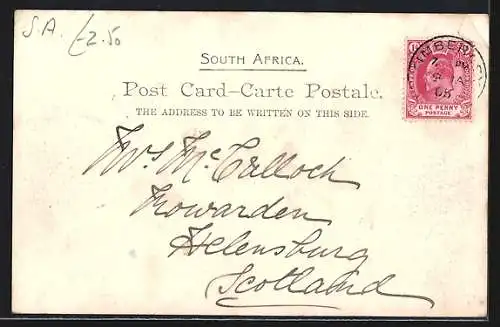 S.A. £2.50
SOUTH AFRICA.
Post Card–Carte Postale.
THE ADDRESS TO BE WRITTEN ON THIS SIDE.
ONE PENNY
POSTAGE
Mrs McCulloch
Rowarden
Helensburg
Scotland